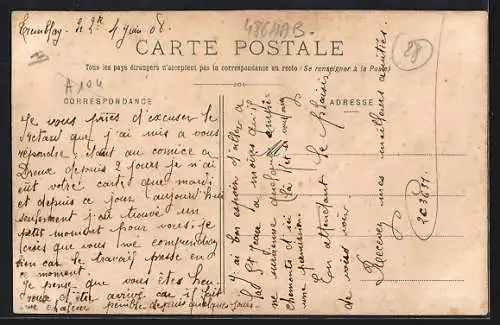 Tremblay. 2 2h 4 Juin 08.
486HAB.
28
CARTE POSTALE
Tous les pays étrangers n'acceptent pas la correspondance au recto (Se renseigner à la Poste)
A104
CORRESPONDANCE
ADRESSE
Je vous pries d'excuser le
retard que j'ai mis a vous
repondre; étant au comice a
Dreux depuis 2 jours je n'ai
eût votre carte que mardi
et depuis ce jour aujourd'hui
seulement j'ai trouvé un
petit moment pour vous; je
crois que vous me comprendrez
bien car le travail presse en
ce moment.
Je pense que vous êtes heu
reux d'être arrivé car il fait
une chaleur penible depuis quelques jours.
J'ai bon espoir d'aller a
la St Jean a moins qu'il
ne survienne quelque
chements d'ici la
une permission.
En attendant le plaisir
de vous voir.
Recevez mes meilleurs amitiés.
203691.